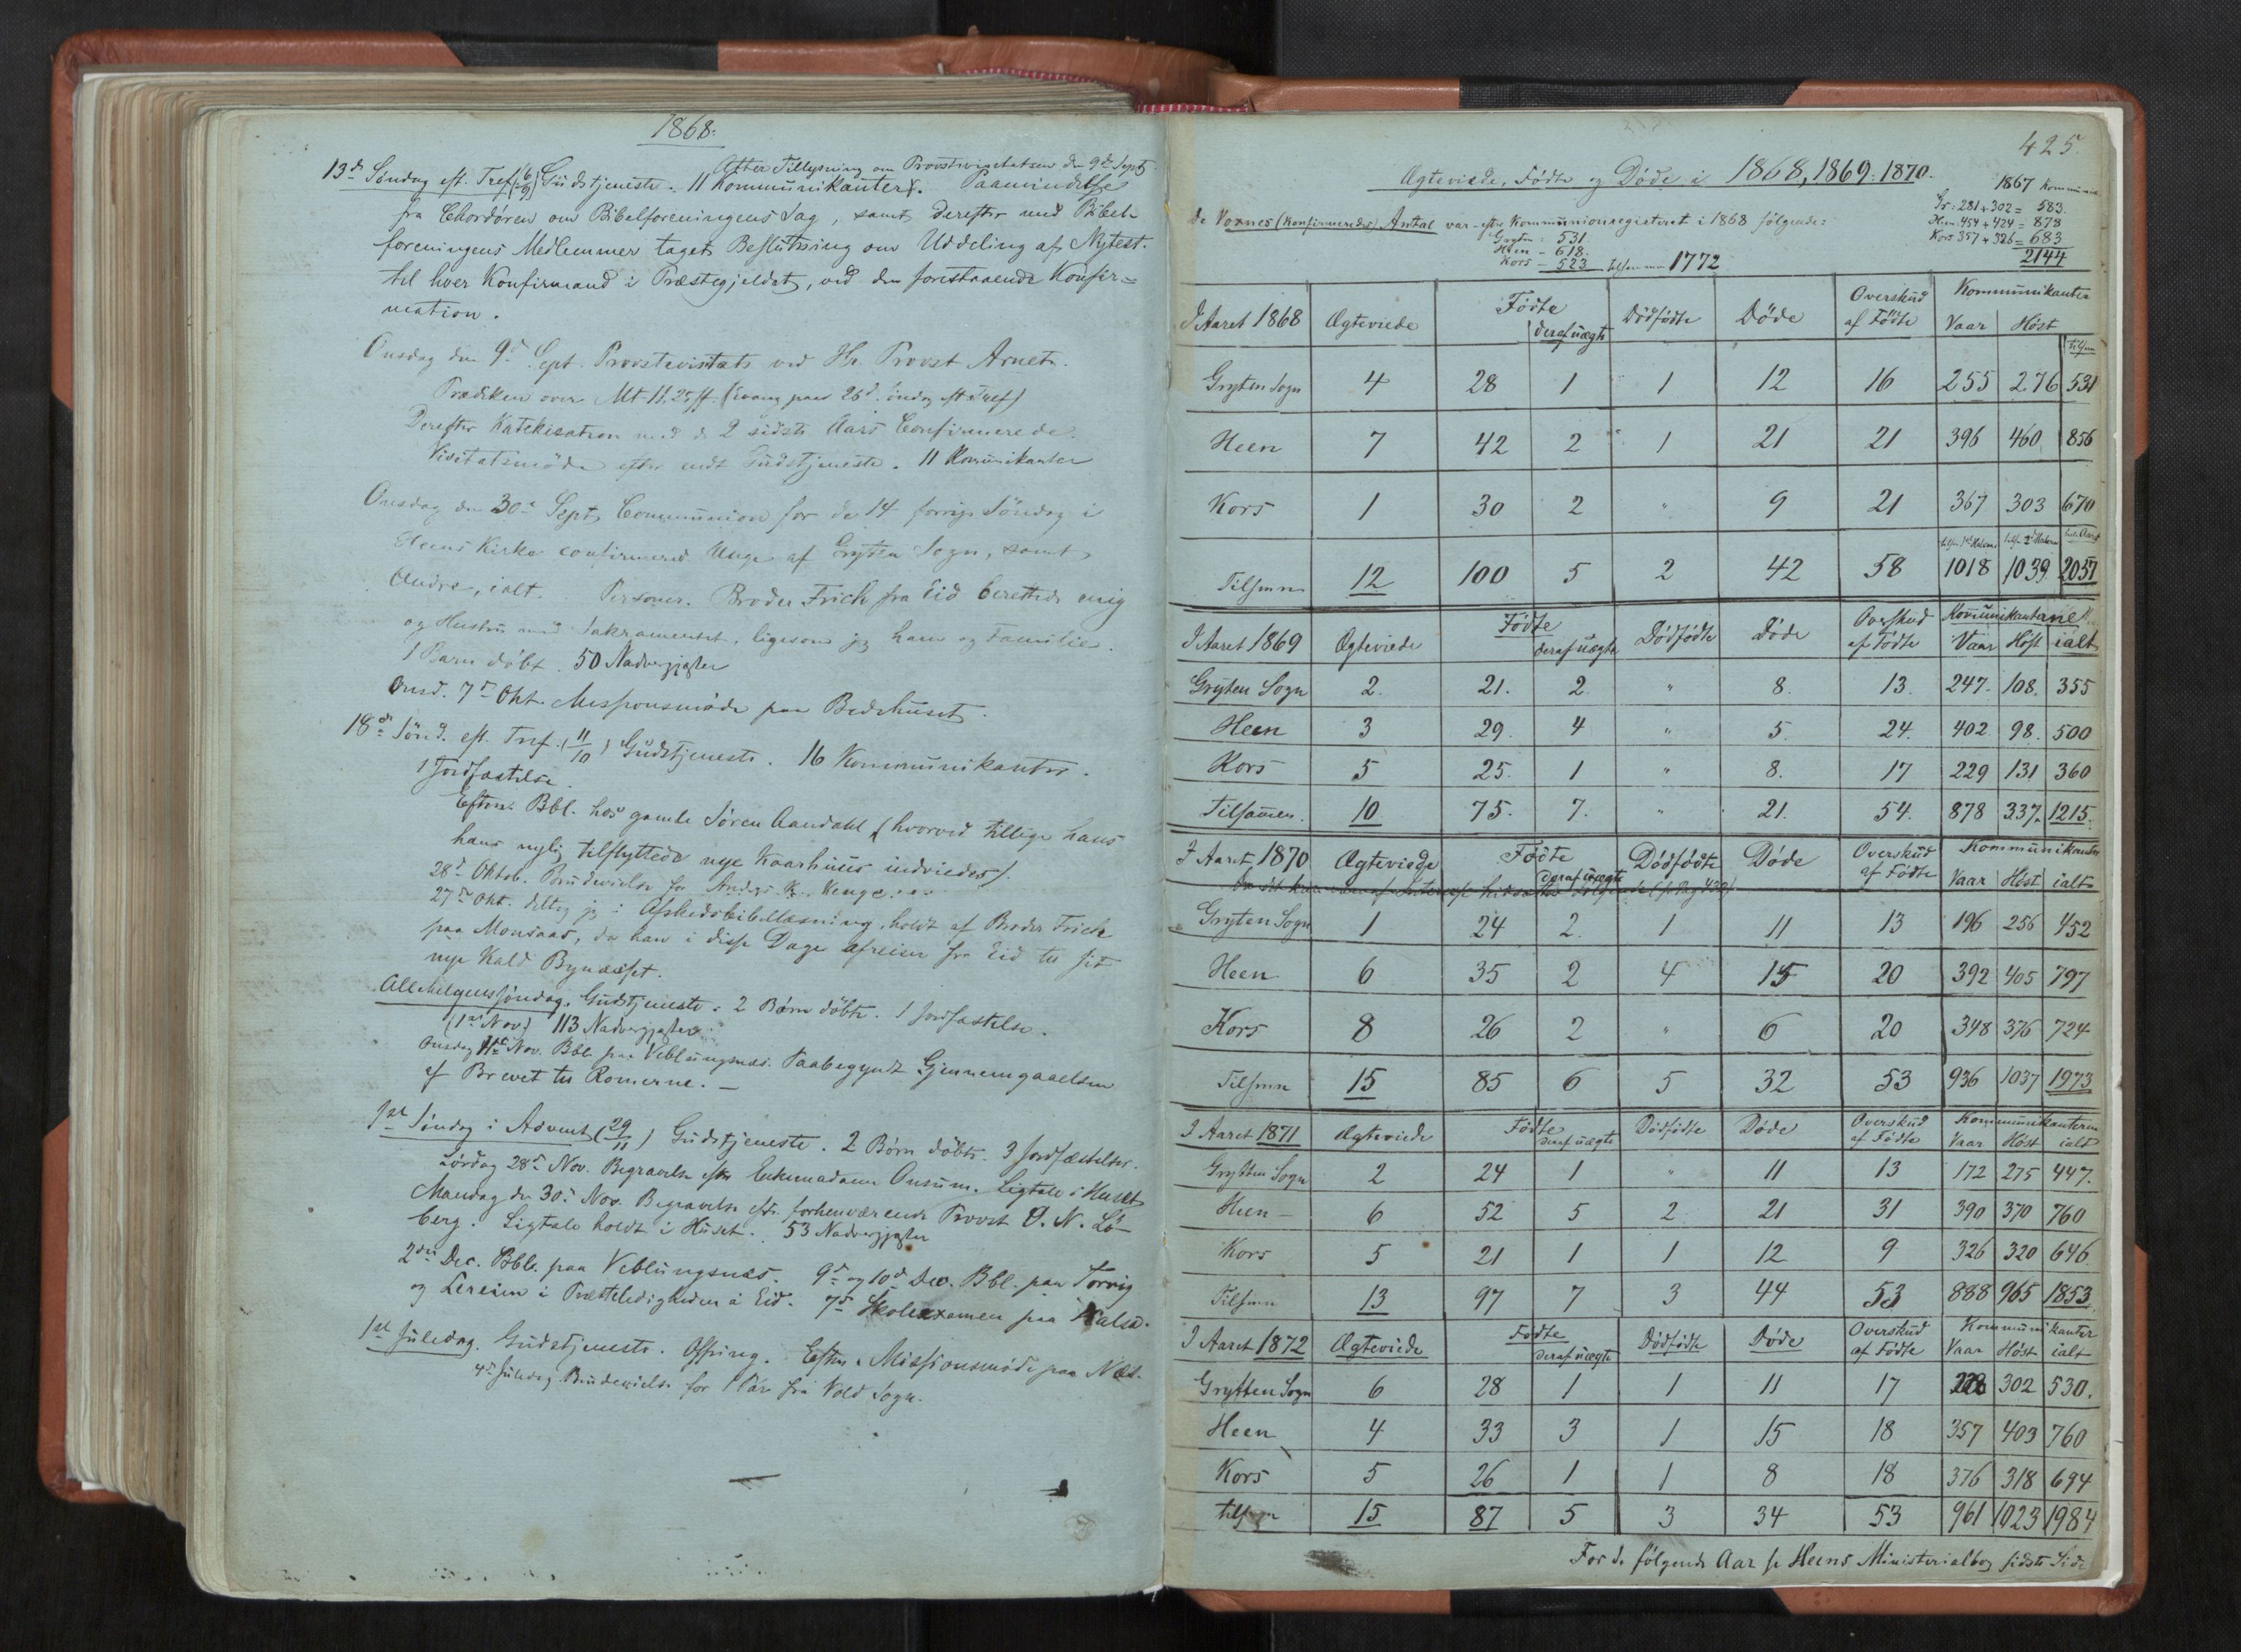 1868.
Atter Tillysning om Provstivisitatsen den 9de Sept.
13de Søndag eft. Tref. (6/9) Gudstjeneste. 11 Kommunikanter. Paamindelse
fra Chordøren om Bibelforeningens Sag, samt derefter med Bibel-
foreningens Medlemmer taget Beslutning om Uddeling af Nytest.
til hver Konfirmand i Præstegjeldet, ved den forestaaende Konfir=
mation.
Onsdag den 9de Sept. Provstevisitats ved Hr. Provst Arnet.
Prædiken over Mt. 11,25ff. (Evang. paa 26d. Søndag eft. Tref)
Derefter Katekisation med de 2 sidste Aars Confirmerede.
Visitatsmøde efter endt Gudstjeneste. 11 Komunikanter
Onsdag den 30te Sept. Communion for de 14 forrige Søndag i
Heens Kirke confirmered Unge af Grytten Sogn, samt
Andre, ialt. Personer. Broder Frich fra Eid berettede mig
og Hustru med Sakramentet, ligesom jeg ham og Familie.
1 Barn døbt. 50 Nadvergjæster
Onsd. 7de Okt. Missionsmøde paa Bedehuset.
18de Sønd. eft. Tref. (11/10) Gudstjeneste. 16 Kommunikanter.
1 Jordfæstelse.
Efterm. Bbl. hos gamle Søren Aandahl (hvorved tillige hans
hans nylig tilflyttede nye Kaarhuus indviedes).
28d Oktob. Brudevielse for Anders K. Venge...
27de Okt. deltog jeg i Afskedsbibellæsning, holdt af Broder Frich
paa Monsaas, da han i disse Dage afreiser fra Eid til sit
nye Kald Bynæsset.
Allehelgenssøndag. Gudstjeneste. 2 Børn døbte. 1 Jordfæstelse.
(1ste Nov) 113 Nadvergjæster
Onsdag 11te Nov. Bbl. paa Veblungsnæs. Paabegyndt Gjennemgaaelsen
af Brevet til Romerne. —
1ste Søndag i Advent (29/11) Gudstjeneste. 2 Børn døbte. 3 Jordfæstelser.
Lørdag 28de Nov. Begravelse efter Enkemadame Onsum. Ligtale i Huset
Mandag den 30te Nov. Begravelse eftr. forhenværende Provst O. N. Lø-
berg. Ligtale holdt i Huset. 53 Nadvergjæster
2den Dec. Bbl. paa Veblungsnæs. 9de og 10de Dec. Bbl. paa Torvig
og Lereim i Præsteledigheden i Eid. 7de Skoleexamen paa Halsa.
1ste Juledag. Gudstjeneste. Offring. Efterm. Missionsmøde paa Næs.
4de Juledag Brudevielse for 1 Par fra Vold Sogn.
425.
Ægteviede, Fødte og Døde i 1868, 1869. 1870.
1867 Kommunik.
Gr: 281 + 302 = 583.
Heen 454 + 424 = 878
Kors 357 + 326 = 683
2144
De Voxnes (Konfirmeredes) Antal var efter Kommunionregisteret i 1868 følgende:
Grytten: 531.
Heen - 618.
Kors - 523 tilsammen 1772
I Aaret 1868 Ægteviede Fødte deraf uægte Dødfødte Døde Overskud af Fødte Kommunikanter Vaar Høst tilsm
Grytten Sogn 4 28 1 1 12 16 255 276 531
Heen 7 42 2 1 21 21 396 460 856
Kors 1 30 2 " 9 21 367 303 670
tilsm. 1st Halvaar tilsm 2d Halvaar hele Aaret
Tilsmn 12 100 5 2 42 58 1018 1039 2057
I Aaret 1869 Ægteviede Fødte deraf uægte Dødfødte Døde Overskud af Fødte Komunikanterne Vaar Høst ialt
Grytten Sogn 2. 21. 2. " 8. 13. 247. 108. 355
Heen 3 29. 4 " 5. 24. 402 98. 500
Kors 5 25. 1 " 8. 17 229 131 360
Tilsamen. 10 75. 7. " 21. 54. 878 337. 1215.
I Aaret 1870 Ægteviede Fødte deraf uægte Dødfødte Døde Overskud af Fødte Kommunikanter Vaar Høst ialt
Grytten Sogn 1 24 2. 1 11 13 196 256 452
Heen 6 35 2 4 15 20 392 405 797
Kors 8 26 2 " 6 20 348 376 724
Tilsmn 15 85 6 5 32 53 936 1037 1973
I Aaret 1871 Ægteviede Fødte deraf uægte Dødfødte Døde Overskud af Fødte Kommunikanterne Vaar Høst ialt
Grytten Sogn 2 24 1 " 11 13 172 275 447.
Heen — 6 52 5 2 21 31 390 370 760
Kors 5 21 1 1 12 9 326 320 646.
Tilsmn 13 97 7 3 44 53 888 965 1853
I Aaret 1872 Ægteviede Fødte deraf uægte Dødfødte Døde Overskud af Fødte Kommunikanter Vaar Høst ialt
Grytten Sogn 6 28 1 1 11 17 228 302 530.
Heen 4 33 3 1 15 18 357 403 760
Kors 5 26 1 1 8 18 376 318 694
tilsmn 15 87 5 3 34 53 961 1023 1984
For de følgende Aar se Heens Ministerialbog sidste Side